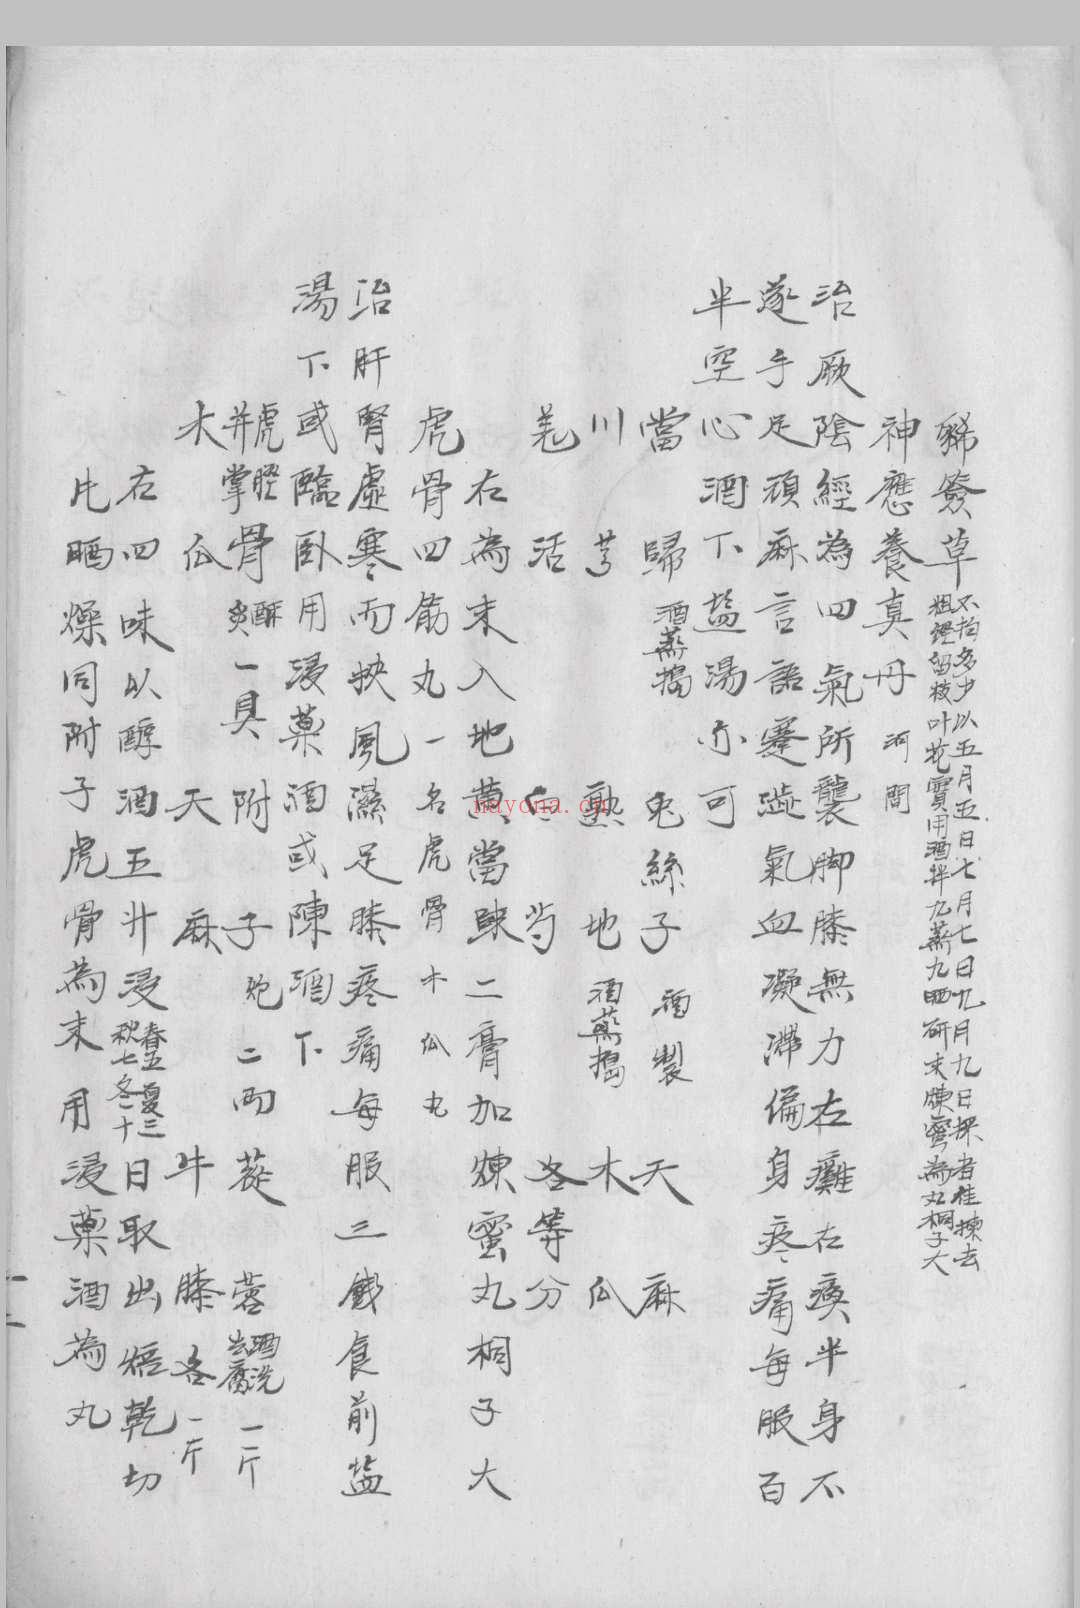 豨簽草 不拘多少以五月五日七月七日九月九日採者佳揀去粗莖留枝叶花實用酒拌九蒸九晒研末煉蜜為丸桐子大
神應養真丹 河間
治厥陰經為四氣所襲脚膝無力左癱右瘓半身不
遂手足頑麻言語蹇澁氣血凝滯徧身疼痛每服百
半空心酒下盐湯亦可
當歸 酒蒸搗 兎絲子 酒製 天麻
川芎 熟地 酒蒸搗 木瓜
羌活 白芍 各等分
右為末入地黃當歸二膏加煉蜜丸桐子大
虎骨四筋丸一名虎骨木瓜丸
治肝腎虛寒而挾風濕足膝疼痛每服三錢食前盐
湯下或臨卧用浸藥酒或陳酒下
虎脛并掌骨 酥炙 一具 附子 炮 二兩 蓯蓉 酒洗去腐 一斤
木瓜 天麻 牛膝各一斤
右四味以醇酒五升浸春五夏三秋七冬十日取出焙乾切
片晒燥同附子虎骨為末用浸藥酒為丸
nayona.cn